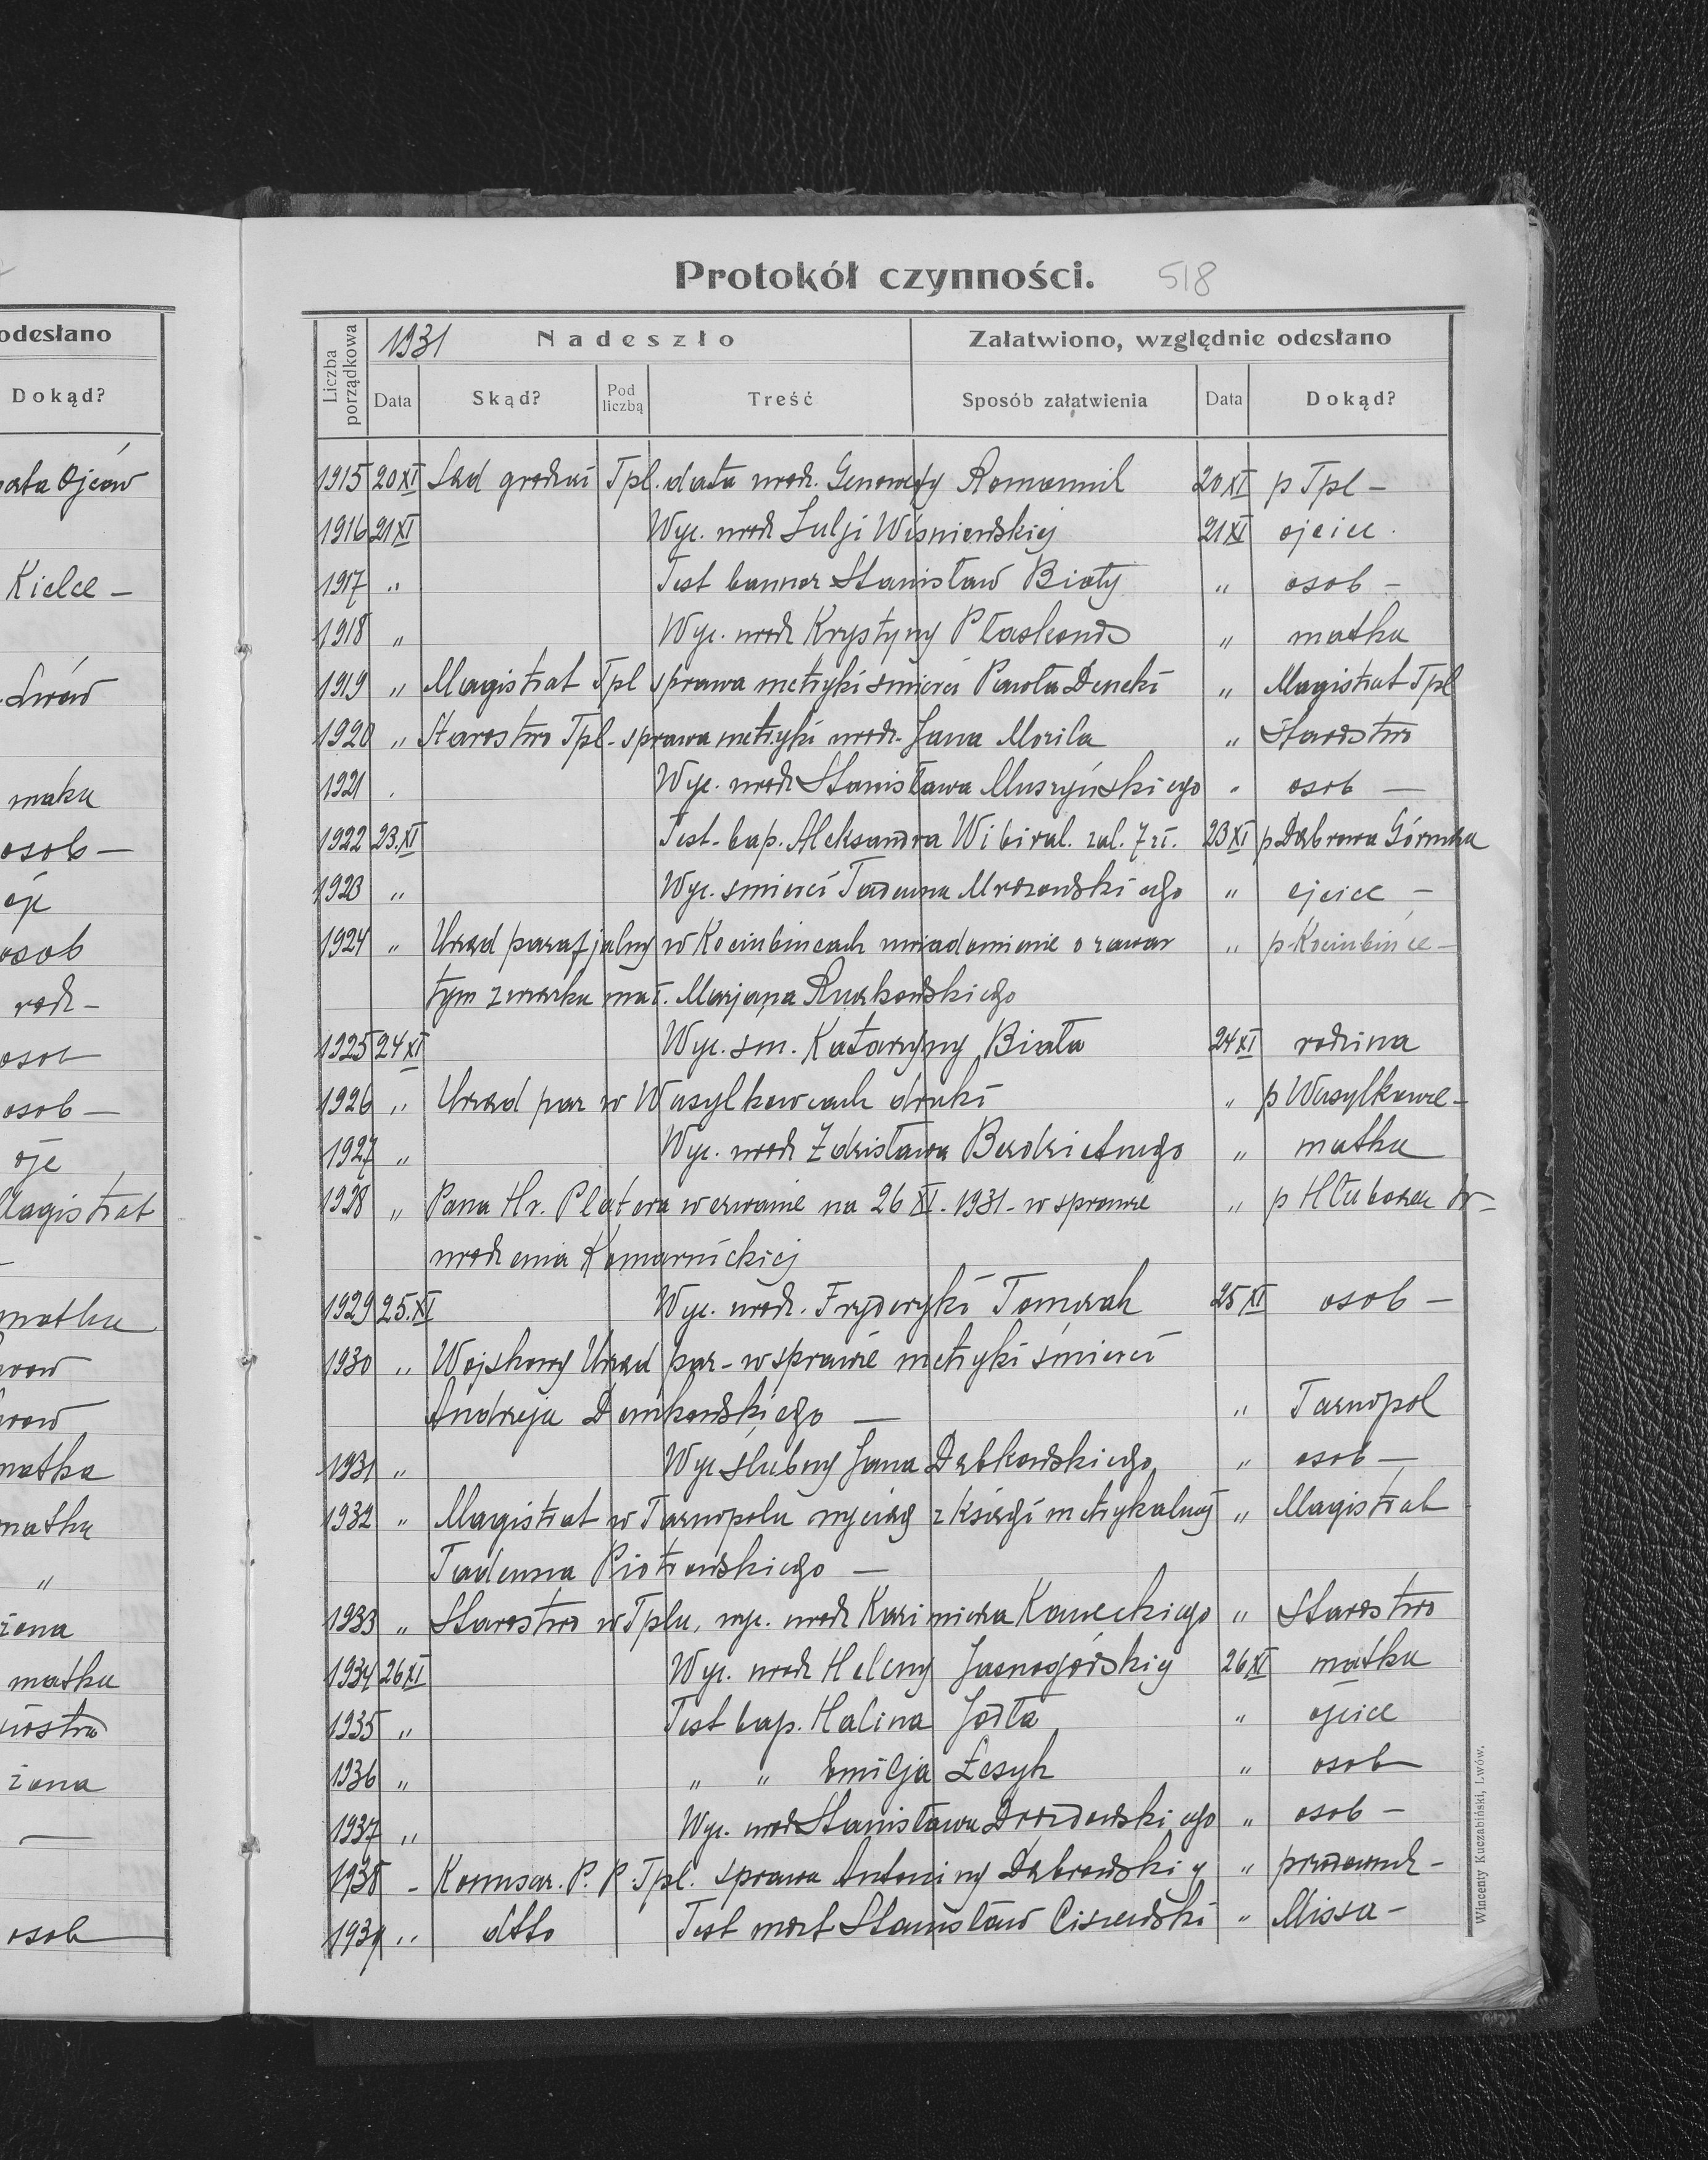 odesłano
Dokąd?
Ojców
Kielce –
Lwów
maku
osob –
ojc
osob
rodz –
osob
osob –
ojc
Magistrat
matka
matka
matka
"
żona
matka
siostra
żona
osob
Protokół czynności. 518
Liczba porządkowa 1931 Nadeszło Załatwiono, względnie odesłano
Data Skąd? Pod liczbą Treść Sposób załatwienia Data Dokąd?
1915 20 XI Sąd grodzki Tpl. data urodz. Genowefy Romanuik 20 XI p Tpl –
1916 21 XI Wyc. urodz Julji Wiśniewskiej 21 XI ojciec.
1917 " Test bannor Stanisław Biały " osob –
1918 " Wyc. urodz Krystyny Płaskond " matka
1919 " Magistrat Tpl sprawa metryki śmierci Pawła Deneki " Magistrat Tpl
1920 " Starostwo Tpl. sprawa metryki urodz. Jana Mozila " Starostwo
1921 . Wyc. urodz Stanisława Muszyńskiego " osob –
1922 23.XI Test. bap. Aleksandra Wibiral. zal. 7 zł. 23 XI p Dąbrowa Górnicza
1923 " Wyc. śmierci Tadeusza Mrozowskiego " ojciec –
1924 " Urząd parafjalny w Kociubińcach uwiadomienie o zawar " p. Kociubińce –
tym związku mał. Marjana Ruszkowskiego
1925 24 XI Wyc. śm. Katarzyny Biała 24 XI rodzina
1926 " Urząd par w Wasylkowcach druki " p Wasylkowce –
1927 " Wyc. urodz Zdzisława Budzietnego " matka
1928 " Pana Hr. Platera wezwanie na 26 XI. 1931 – w sprawie " p Hłuboczek
urodzenia Komarnickiej
1929 25.XI Wyc. urodz. Fryderyki Tomczak 25 XI osob –
1930 " Wojskowy Urząd par – w sprawie metryki śmierci
Andrzeja Demkowskiego – " Tarnopol
1931 " Wyc ślubny Jana Dąbkowskiego " osob –
1932 " Magistrat w Tarnopolu wyciąg z księgi metrykalnej " Magistrat
Tadeusza Piotrowskiego –
1933 " Starostwo w Tplu, wyc. urodz Kazimierza Kaweckiego " Starostwo
1934 26 XI Wyc. urodz Heleny Jasnogórskiej 26 XI matka
1935 " Test bap. Halina Jodła " ojciec
1936 " " " Emilja Łesyk " osob
1937 " Wyc. urodz Stanisława Drozdowskiego " osob –
1938 – Komisar. P. P. Tpl. sprawa Antoniny Dąbrowskiej "
1939 " dtto Test mort Stanisław Ciszewski " Missa –
Wincenty Kuczabiński, Lwów.